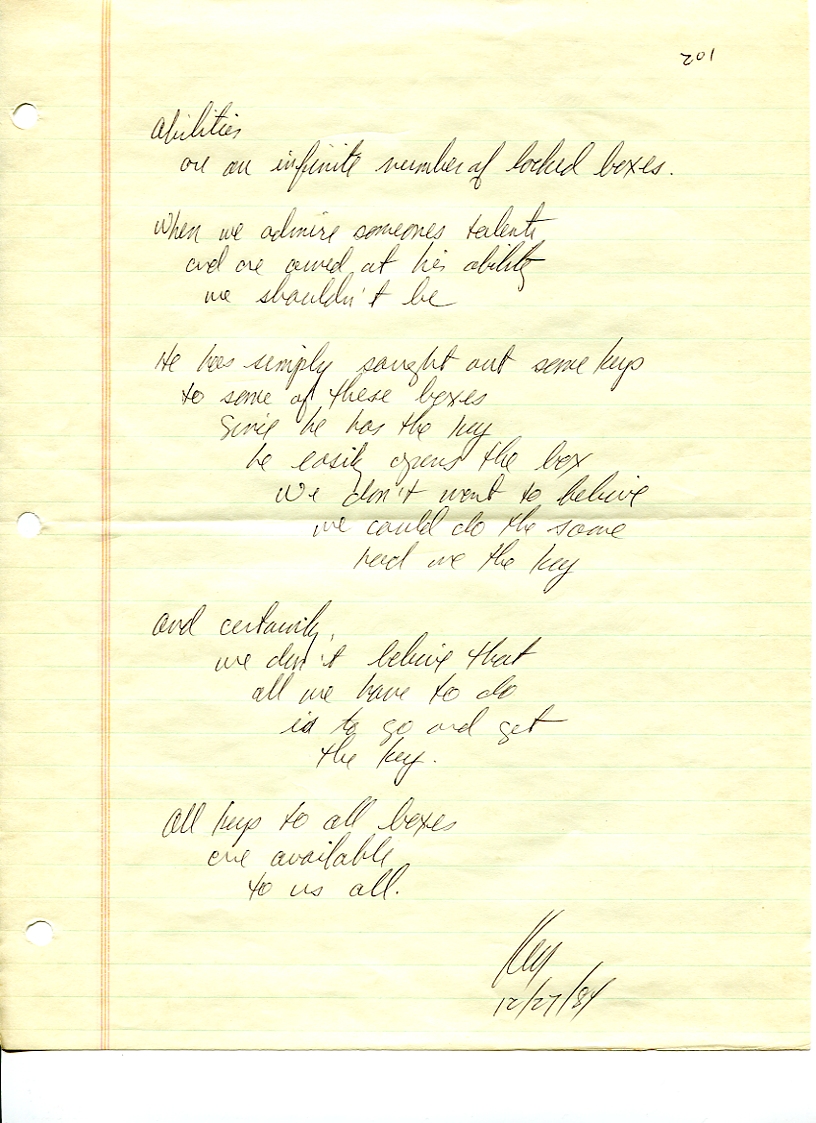 201
Abilities
are an infinite number of locked boxes.
When we admire someones talents
and are awed at his ability
we shouldn't be
He has simply sought out some keys
to some of these boxes
Since he has the key
he easily opens the box
We don't want to believe
we could do the same
had we the key
And certainly,
we don't believe that
all we have to do
is to go and get
the key.
All keys to all boxes
are available
to us all.
12/27/84